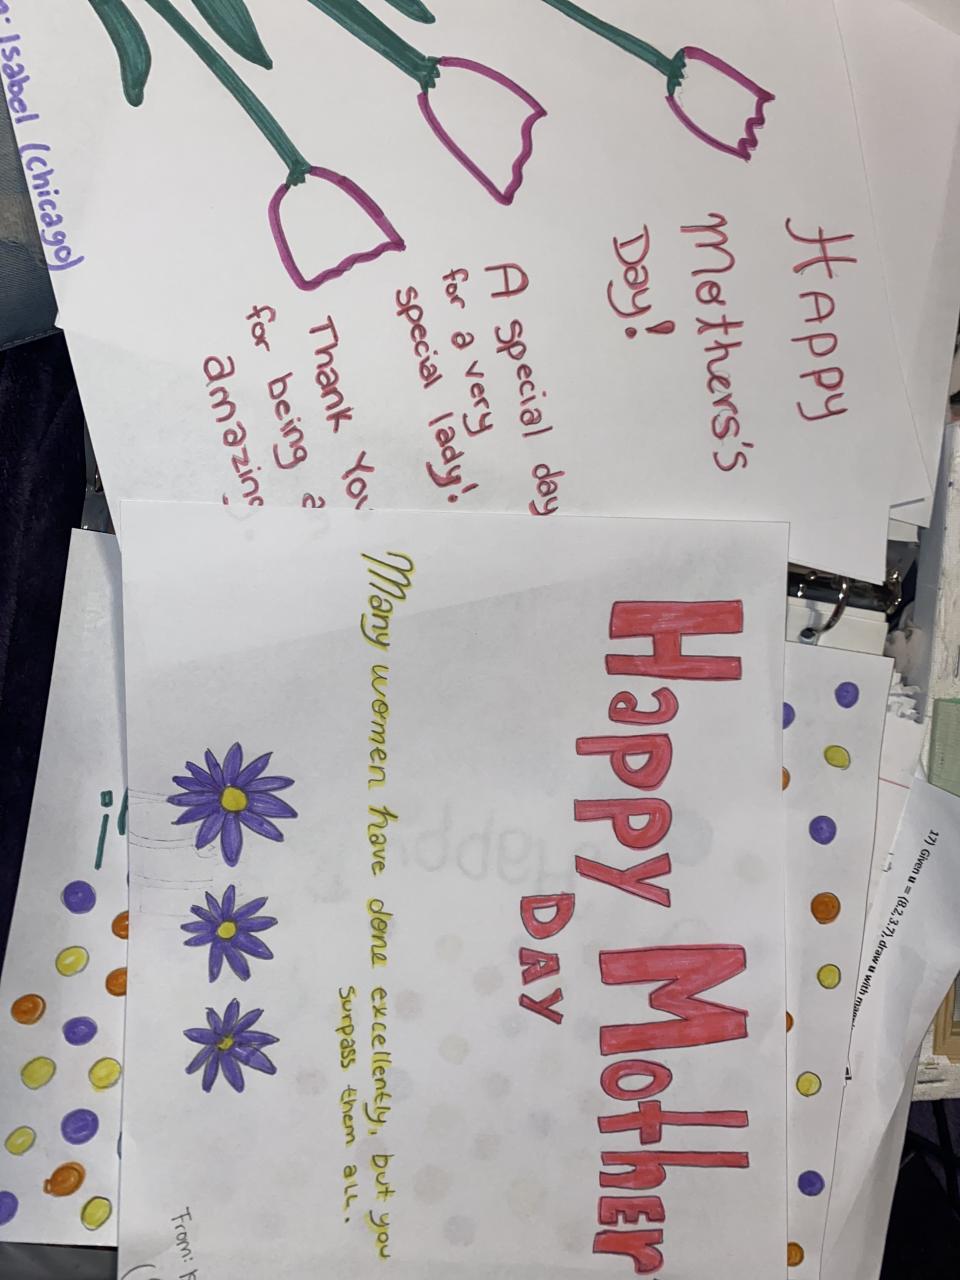 Happy
Mothers's
Day!
A special day
for a very
special lady!
Thank You
for being an
amazing
: Isabel (chicago)
Happy Mother
DAY
Many women have done excellently, but you
surpass them all.
From:
17) Given u = (8.2, 3.7), draw u with